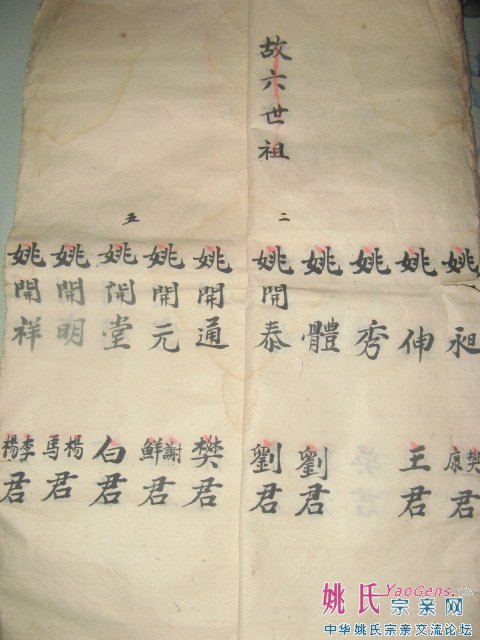 故六世祖
姚昶
樊康君
姚伸
王君
姚秀
姚體
劉君
二
姚開泰
劉君
姚開通
樊君
姚開元
謝鮮君
五
姚開堂
白君
姚開明
楊馬君
姚開祥
李楊君
姚氏宗亲网
YaoGens.
中华姚氏宗亲交流论坛